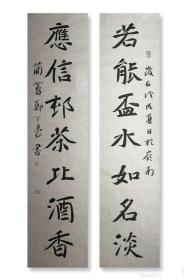 若能盃水如名淡
歲在戊戌夏日於嶺南
應信邨茶比酒香
鄭書